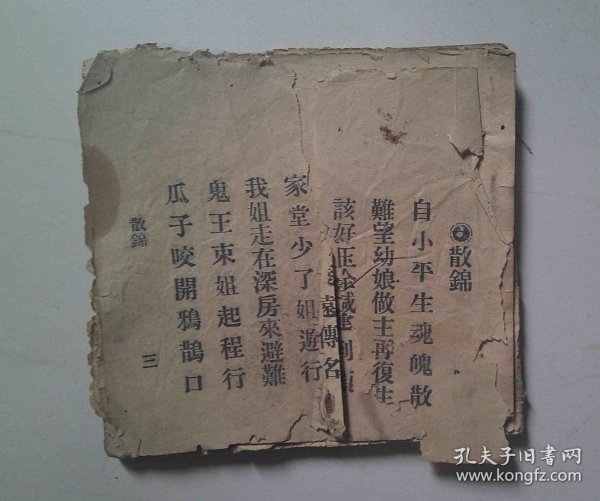 散錦
自小平生魂魄散
難望幼娘做主再復生
該好
遠傳名
家堂少了姐遊行
我姐走在深房來避難
鬼王束姐起程行
瓜子咬開鴉鵲口
散錦
三
孔夫子旧书网
www.kongfz.com